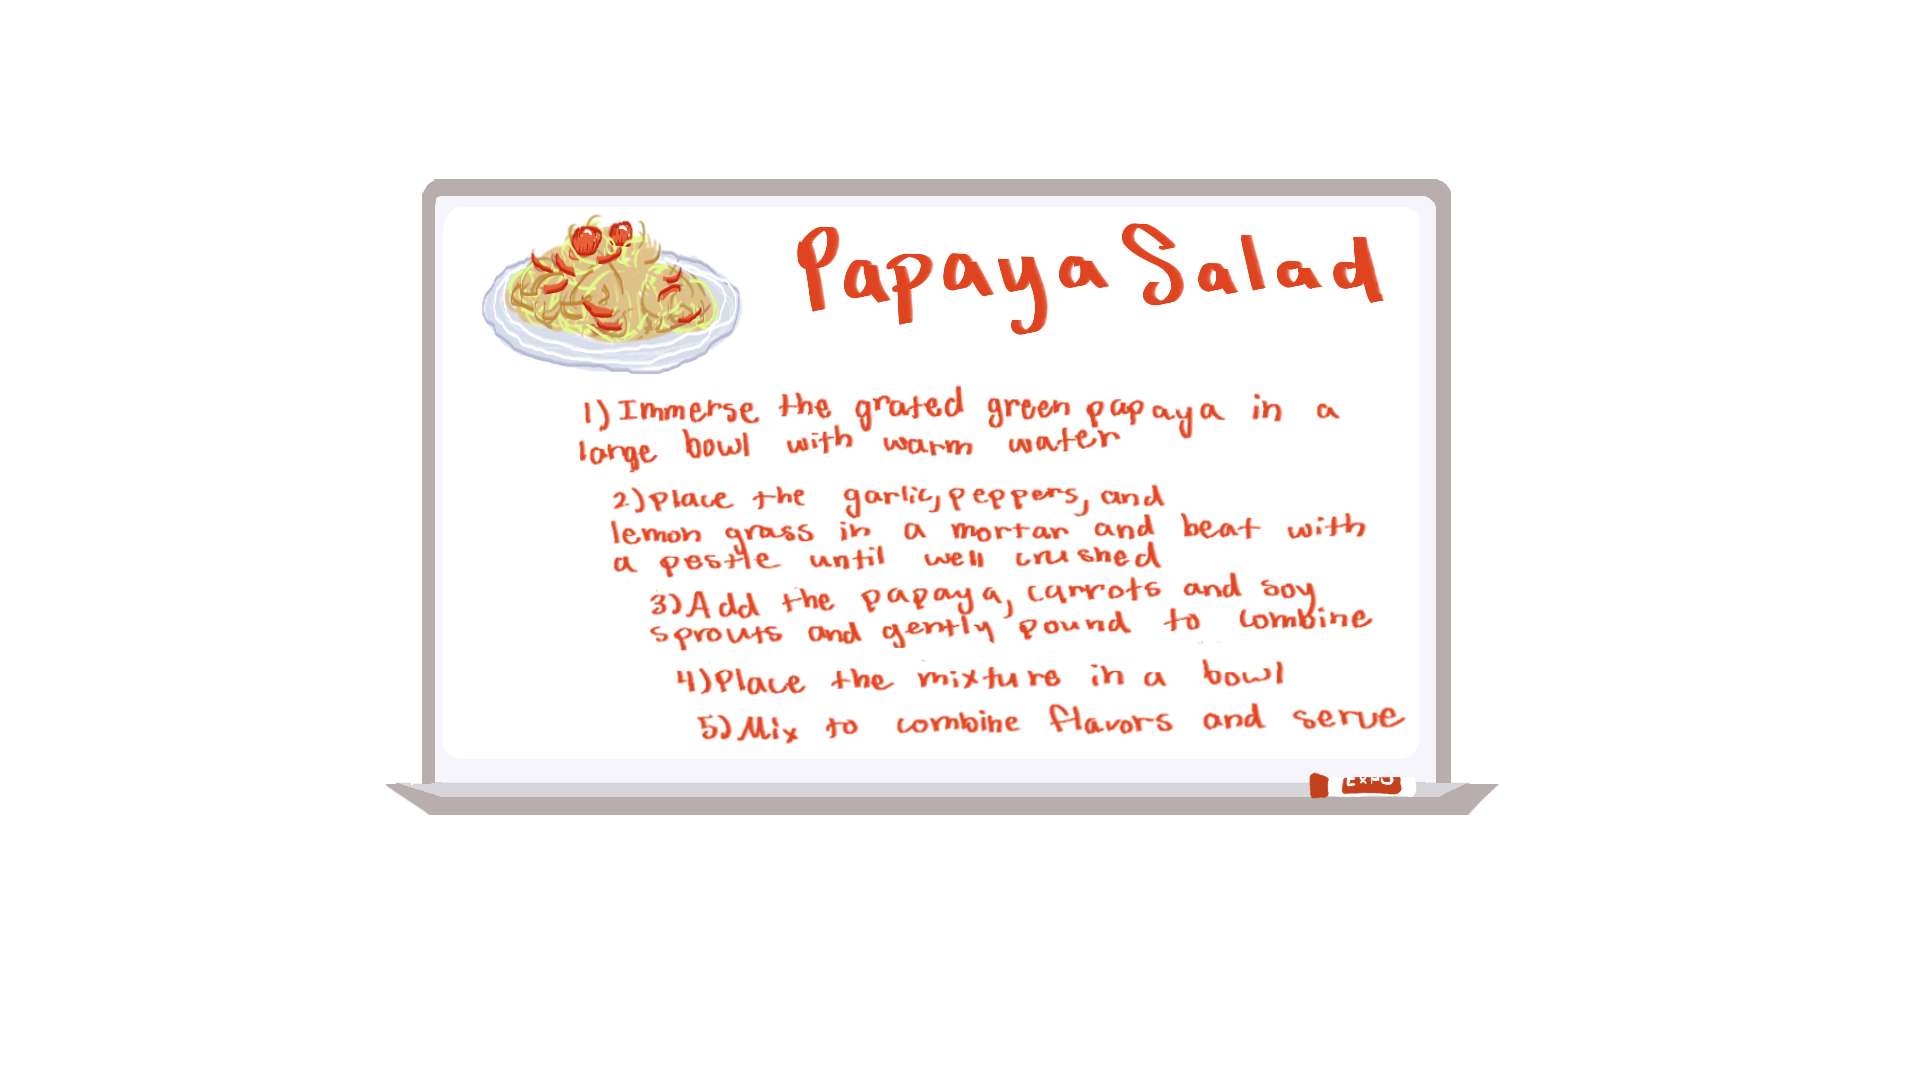 Papaya Salad
1) Immerse the grated green papaya in a
large bowl with warm water
2) Place the garlic, peppers, and
lemon grass in a mortar and beat with
a pestle until well crushed
3) Add the papaya, carrots and soy
sprouts and gently pound to combine
4) Place the mixture in a bowl
5) Mix to combine flavors and serve
EXPO